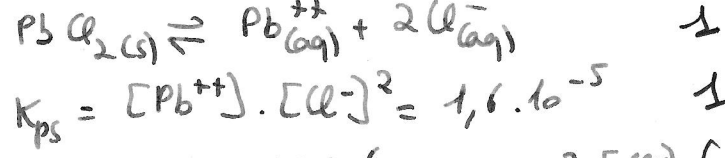 PbCl₂(s) ⇌ Pb⁺⁺(aq) + 2Cl⁻(aq) 1
Kps = [Pb⁺⁺] . [Cl⁻]² = 1,6 . 10⁻⁵ 1